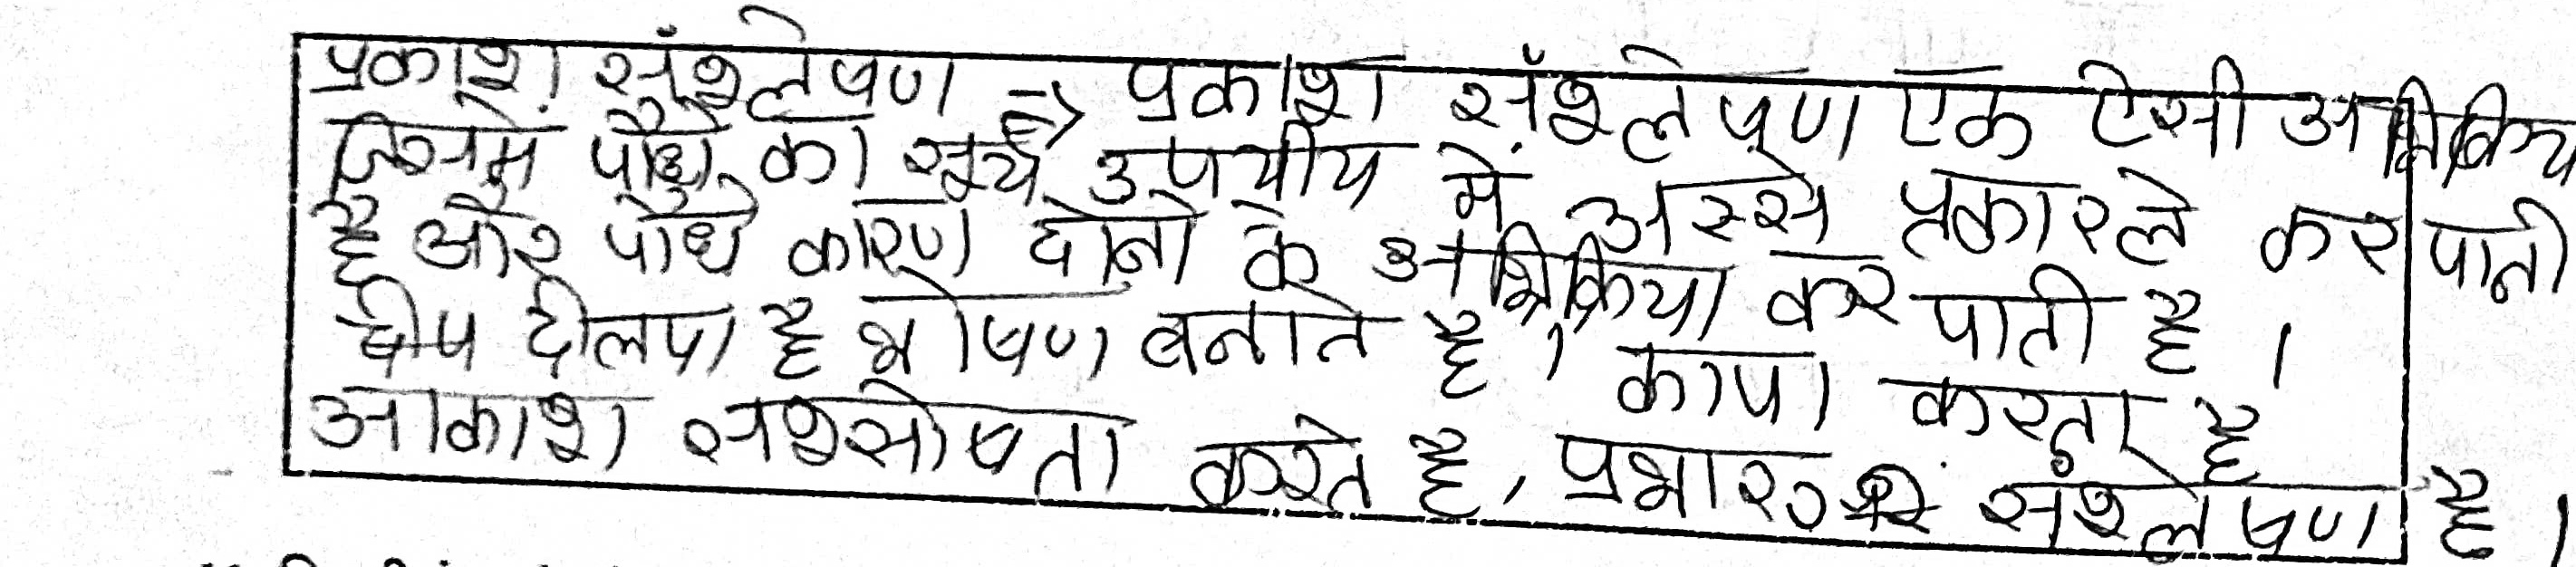 प्रकाश संश्लेषण => प्रकाश संश्लेषण एक ऐसी अभिक्रिय
जिसमे पौधे का सूर्य उपयोय में अस्से प्रकारले कर पाती
है और पौधे कारण दोनो के अभिक्रिया कर पाती है ।
है भोषण बनाते है । करता है
आकाश करते है, संश्लेषण है ।